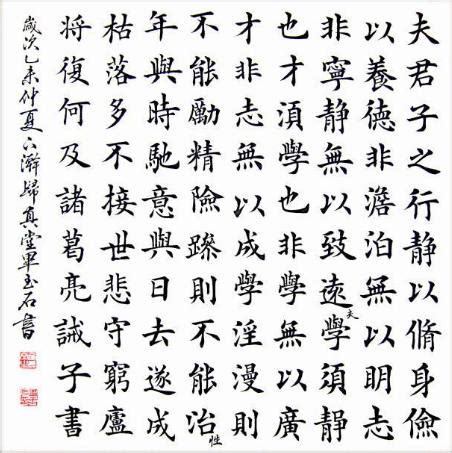 夫君子之行静以脩身儉
以養德非澹泊無以明志
非寧静無以致遠夫學須静
也才須學也非學無以廣
才非志無以成學淫漫則
不能勵精險躁則不能冶性
年與時馳意與日去遂成
枯落多不接世悲守窮廬
将復何及諸葛亮誡子書
歲次乙未仲夏歸真堂畢玉石書